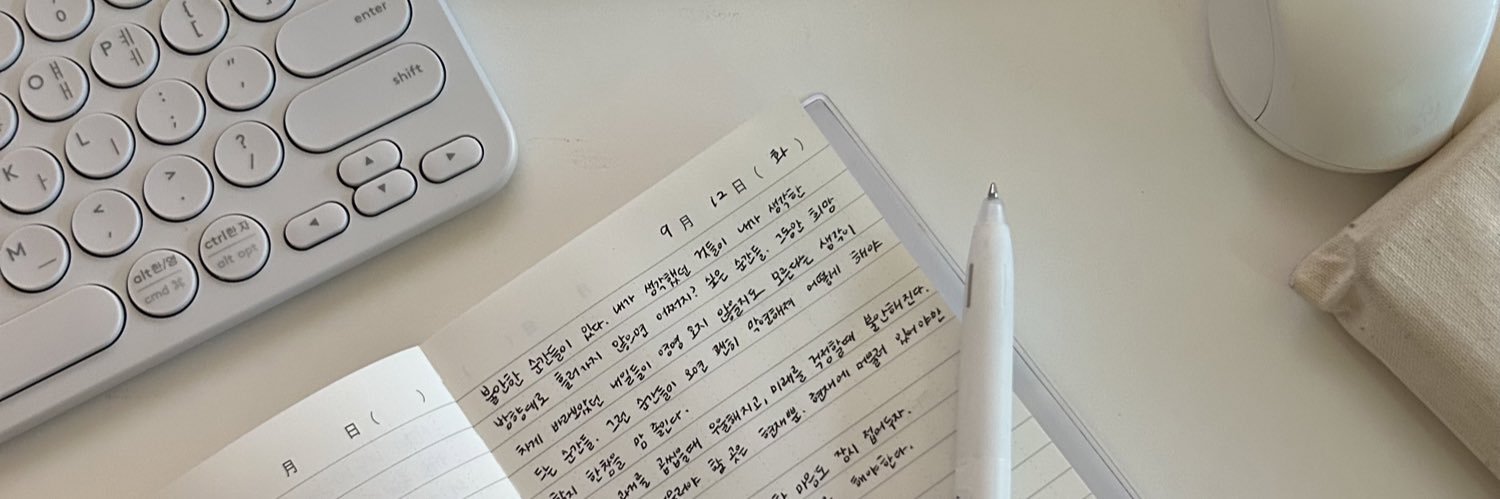 O
{
[
enter
P ㅔ ㅖ
" '
shift
O ㅐ ㅒ
: ;
L ㅣ
? /
K ㅏ
> .
< ,
M ㅡ
ctrl한자
alt opt
alt한/영
cmd ⌘
9月 12日 (화)
불안한 순간들이 있다. 내가 생각했던 것들이 내가 생각한
방향대로 흘러가지 않으면 어쩌지? 싶은 순간들. 그동안 희망
차게 바래왔던 내일들이 영영 오지 않을지도 모른다는 생각이
드는 순간들. 그런 순간들이 오면 괜히 막연해져 어떻게 해야
할지 한참을 맘 졸인다.
과거를 곱씹을때 우울해지고, 미래를 걱정할때 불안해진다.
할 곳은 현재뿐. 현재에 머물러 있어야만
마음도 잠시 접어두자.
해야한다.
月 日 ( )